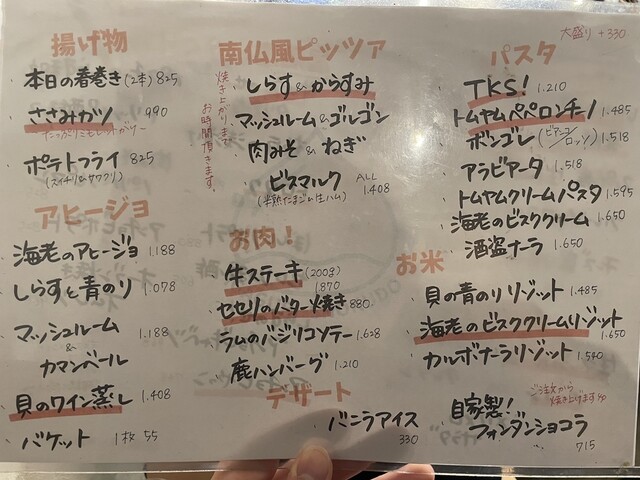 揚げ物
本日の春巻き(2本) 825
ささみカツ 990
たっぷりミモレットがけー
ポテトフライ 825
(スイチリ&サワクリ)
アヒージョ
海老のアヒージョ 1.188
しらすと青のり 1.078
マッシュルーム
& 1.188
カマンベール
貝のワイン蒸し 1.408
バケット 1枚 55
南仏風ピッツァ
焼き上がりまで
お時間頂きます。
しらす&からすみ
マッシュルーム&ゴルゴン
肉みそ&ねぎ
ビスマルク ALL
(半熟たまご&生ハム) 1.408
お肉!
牛ステーキ(200g)
1.870
セセリのバター焼き 880
ラムのバジリコソテー 1.628
鹿ハンバーグ 1.210
デザート
バニラアイス
330
大盛り +330
パスタ
TKS! 1.210
トムヤムペペロンチーノ 1.485
ボンゴレ(ビアンコ/ロッソ) 1.518
アラビアータ 1.518
トムヤムクリームパスタ 1.595
海老のビスククリーム 1.650
酒盗ナーラ 1.650
お米
貝の青のりリゾット 1.485
海老のビスククリームリゾット
1.650
カルボナーラリゾット 1.540
ご注文から
焼き上げます
自家製!
フォンダンショコラ
715